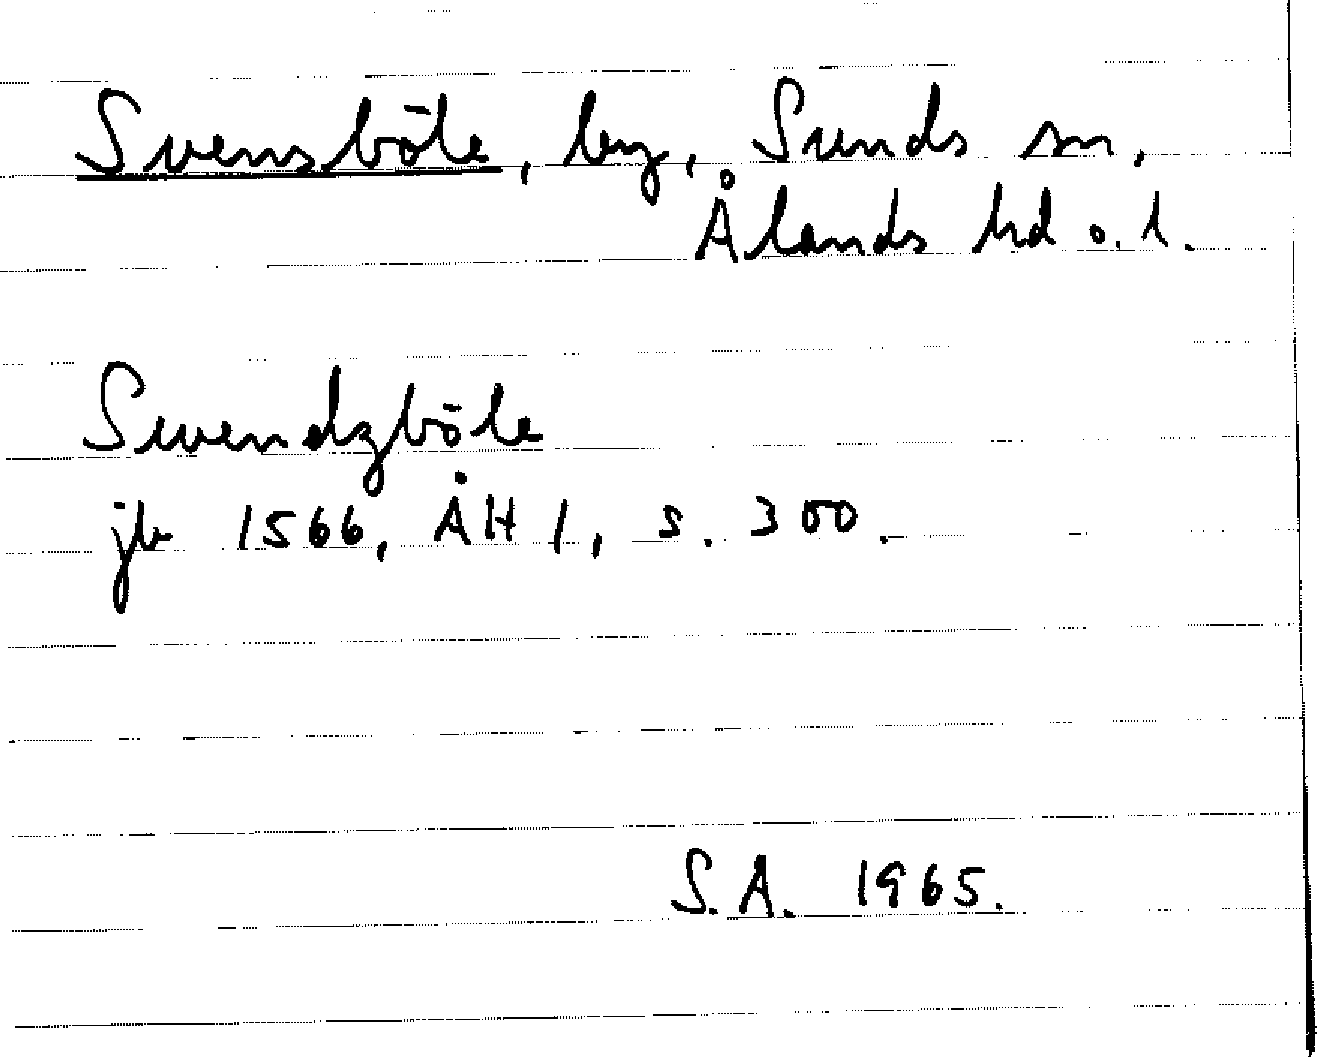 Svensböle, by, Sunds sn,
Ålands hd o. l.
Swendzböle
jb 1566, ÅH 1, s. 300.
S.A. 1965.